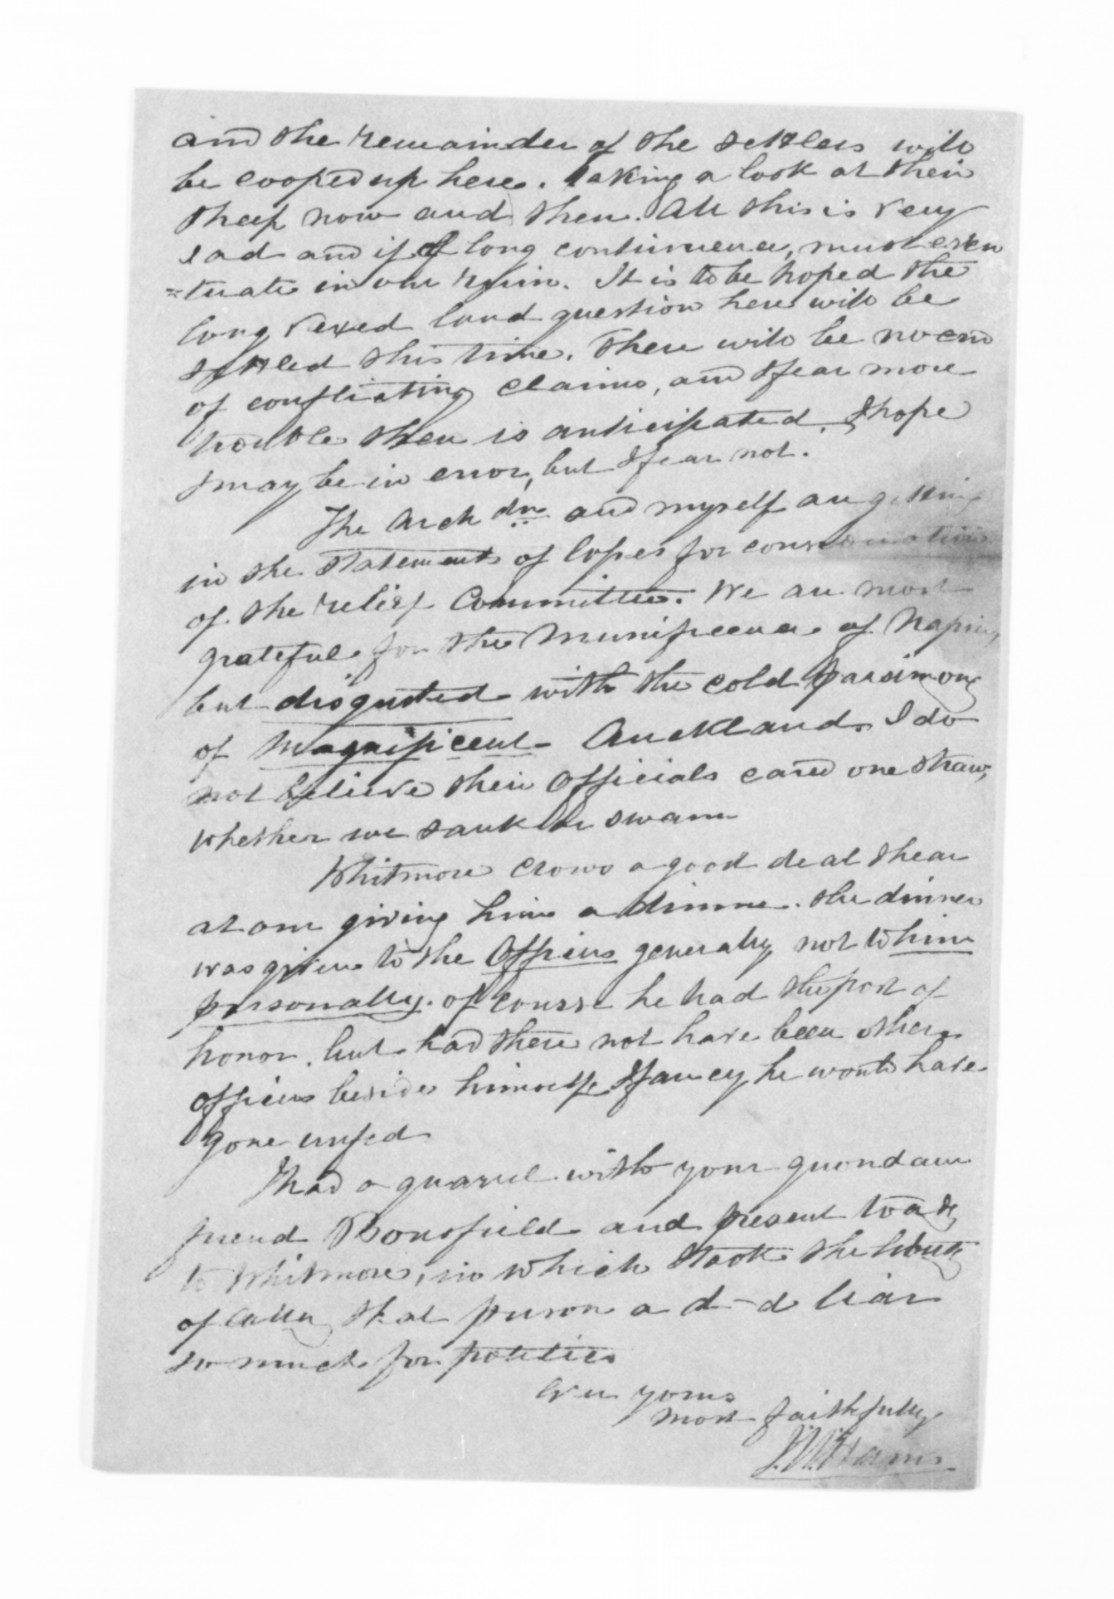 and the remainder of the settlers will
be cooped up here. Taking a look at their
sheep now and then. All this is very
sad and if of long continuence, must even
=tuate in our ruin. It is to be hoped the
long vexed land question here will be
settled this time. There will be no end
of conflicting claims, and I fear more
trouble then is anticipated. I hope
I may be in error, but I fear not.
The Arch dn and myself are getting
in the Statements of losses for consideration
of the relief Committee. We are most
grateful for the Munificence of Napier,
but disgusted with the cold parsimony
of Magnificent Auckland. I do
not believe their Officials cared one straw,
whether we sank or swam
Whitmore crows a good deal I hear
at our giving him a dinner. The dinner
was given to the Officers generally not to him
personally. Of course he had the post of
honor, but had there not have been other
officers beside himself, I fancy he would have
gone unfed
I had a quarrel with your quondam
friend Bousfield and present toady
to Whitmore, in which I took the liberty
of calling that person a d-d liar
so much for politics
Ever yours
most faithfully
J. Williams